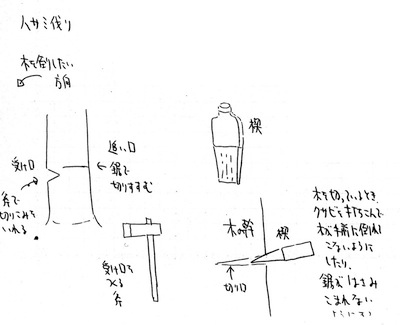 ハサミ伐り
木を倒したい
方向
受け口
斧で
切りこみを
いれる。
追い口
鋸で
切りすすむ
受け口を
つくる
斧
楔
木の幹
楔
切り口
木を切っているとき、
クサビを打ちこんで
木が手前に倒れて
こないように
したり、
鋸がはさみ
こまれない
ようにする